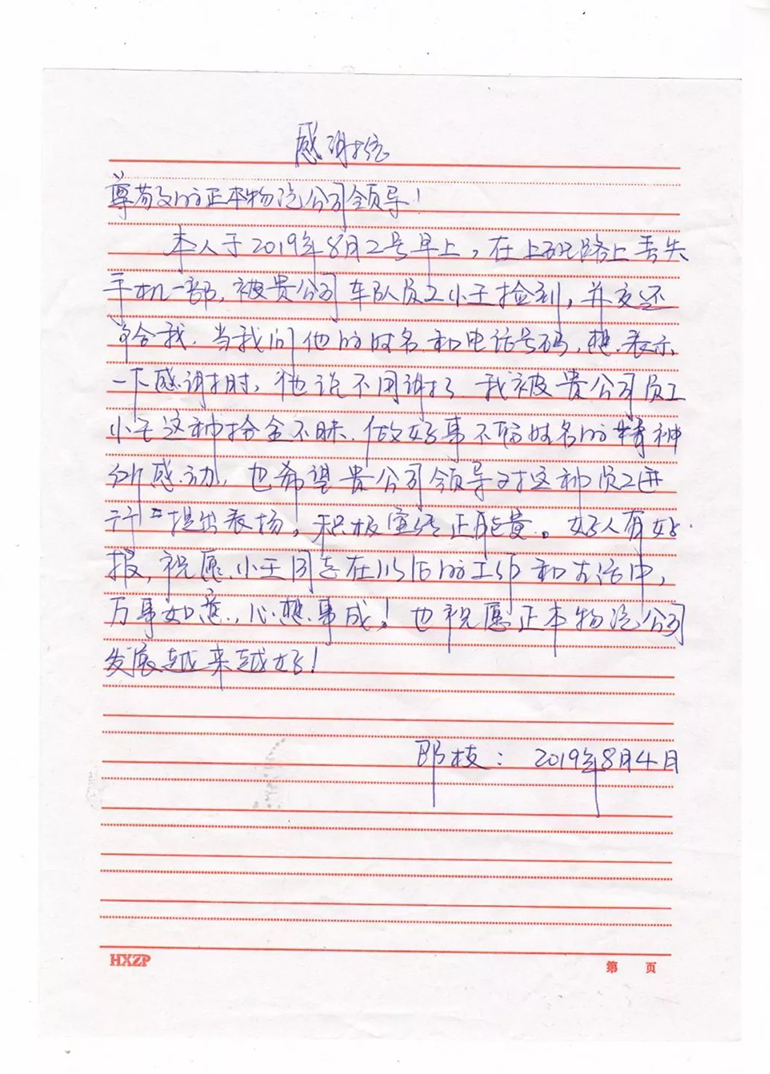 感谢信
尊敬的正本物流公司领导！
本人于2019年8月2号早上，在上班路上丢失
手机一部，被贵公司车队员工小王捡到，并交还
给我。当我问他的姓名和电话号码，想表示
一下感谢时，他说不用谢了 我被贵公司员工
小王这种拾金不昧、做好事不留姓名的精神
所感动，也希望贵公司领导对这种员工进
行 提出表扬，积极宣传正能量。好人有好
报，祝愿小王同志在以后的工作和生活中，
万事如意，心想事成！也祝愿正本物流公司
发展越来越好！
枝：2019年8月4日
HXZP
第 页